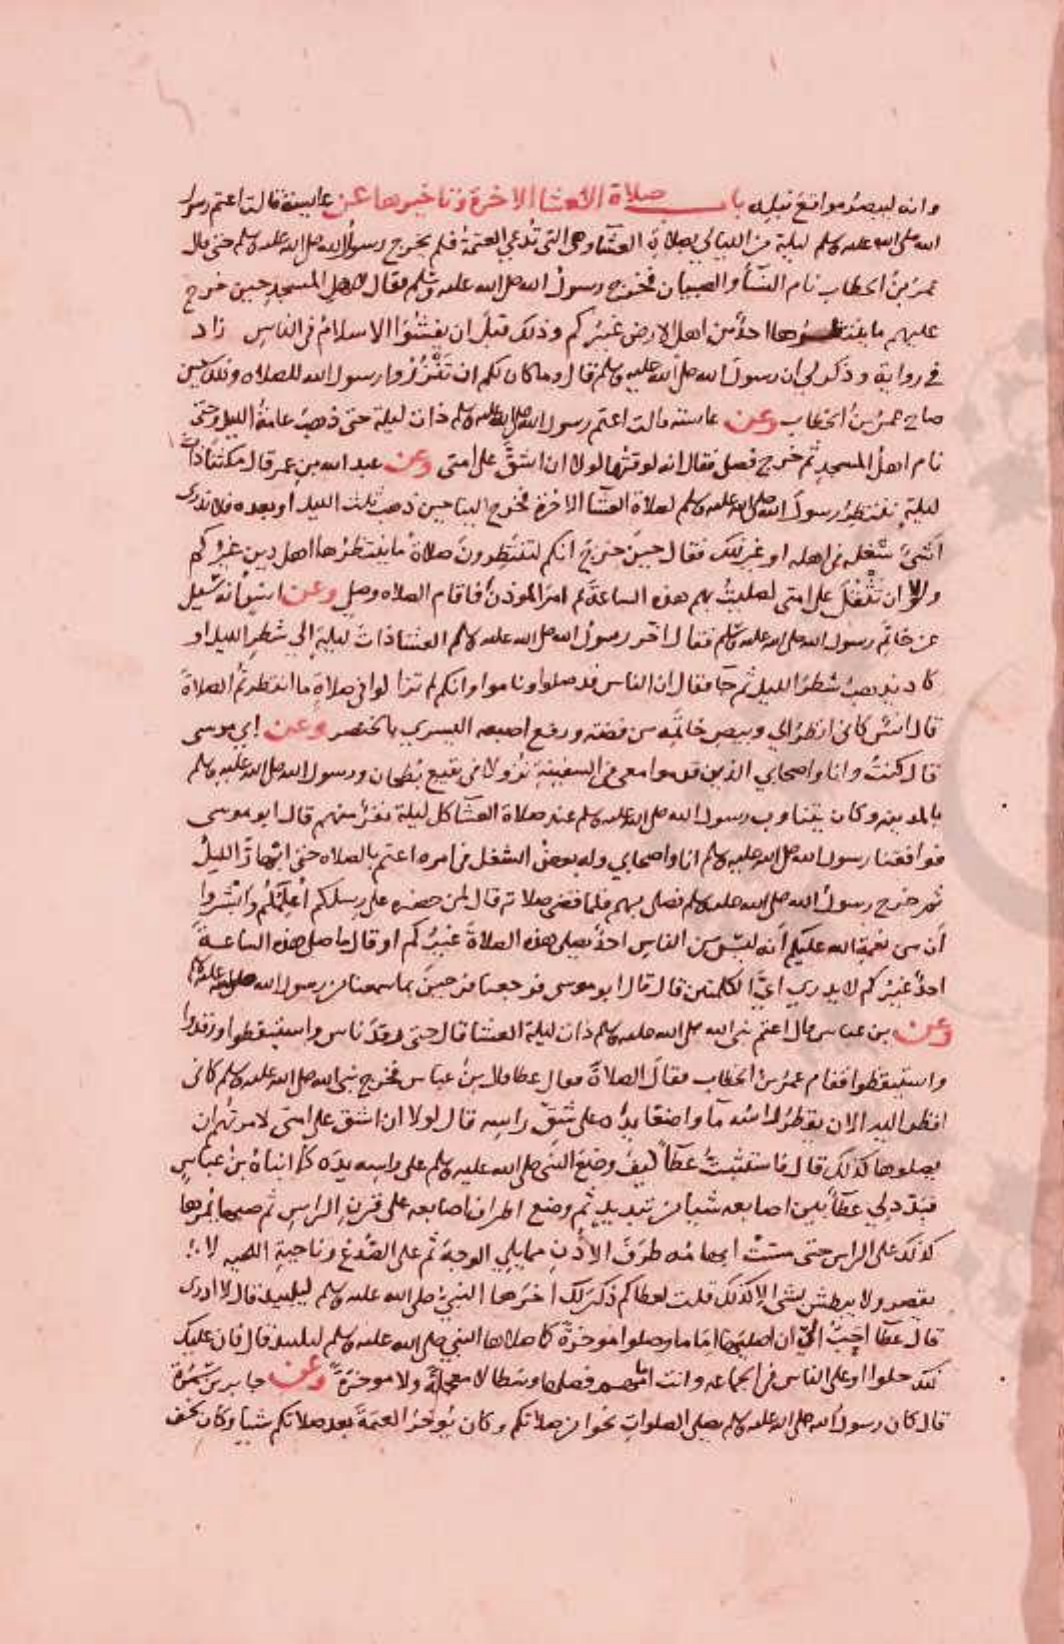 وانه ليبصر مواقع نبله باب صلاة العشا الاخرة وتاخيرها عن عايشة قالت اعتم رسول
الله صلى الله عليه وسلم ليلة من الليالي بصلاة العشا وهي التي تدعي العتمة فلم يخرج رسول الله صلى الله عليه وسلم حتى قال
عمر بن الخطاب نام النسآ والصبيان فخرج رسول الله صلى الله عليه وسلم فقال لاهل المسجد حين خرج
عليهم ما ينتظرها احد من اهل الارض غيركم وذلك قبل ان يفشوا الاسلام في الناس زاد
في رواية وذكر لي ان رسول الله صلى الله عليه وسلم قال وما كان لكم ان تنزروا رسول الله للصلاه وذلك حين
صاح عمر بن الخطاب وعن عايشه قالت اعتم رسول الله صلى الله عليه وسلم ذات ليلة حتى ذهب عامة الليل وحتى
نام اهل المسجد ثم خرج فصلى فقال انه لوقتها لولا ان اشق على امتى وعن عبد الله بن عمر قال مكثنا ذات
ليلة ننتظر رسول الله صلى الله عليه وسلم لصلاة العشآ الاخرة فخرج الينا حين ذهب ثلث الليل او بعده فلا ندرى
اشىء شغله في اهله او غير ذلك فقال حين خرج انكم لتنتظرون صلاة ما ينتظرها اهل دين غيركم
ولولا ان تثقل على امتى لصليت بهم هذه الساعة ثم امر الموذن فاقام الصلاه وصلى وعن انس انه سيل
عن خاتم رسول الله صلى الله عليه وسلم فقال اخر رسول الله صلى الله عليه وسلم العشا ذات ليلة الى شطر الليل او
كاد يذهب شطر الليل ثم جآ فقال ان الناس قد صلوا وناموا وانكم لم تزالوا في صلاة ما انتظرتم الصلاة
قال انس كاني انظر الي وبيص خاتمه من فضته ورفع اصبعه اليسري بالخنصر وعن ابي موسى
قال كنت وانا واصحابي الذين قدموا معي في السفينة نزولا في بقيع بطحان ورسول الله صلى الله عليه وسلم
بالمدينه وكان يتناوب رسول الله صلى الله عليه وسلم عند صلاة العشآ كل ليلة نفر منهم قال ابو موسى
فوافقنا رسول الله صلى الله عليه وسلم انا واصحابي وله بعض الشغل في امره اعتم بالصلاه حتى ابهار الليل
ثم خرج رسول الله صلى الله عليه وسلم فصلى بهم فلما قضى صلاته قال لمن حضره على رسلكم اعلمكم وابشروا
ان من نعمة الله عليكم انه ليس من الناس احد يصلى هذه الصلاة غيركم او قال ما صلى هذه الساعة
احد غيركم لا يدري اي الكلمتين قال قال ابو موسى فرجعنا فرحين بما سمعنا من رسول الله صلى الله عليه وسلم
وعن بن عباس قال اعتم نبي الله صلى الله عليه وسلم ذات ليلة العشا قال حتى رقد ناس واستيقظوا ورقدوا
واستيقظوا فقام عمر بن الخطاب فقال الصلاة فقال عطا قال بن عباس فخرج نبي الله صلى الله عليه وسلم كاني
انظر اليه الان يقطر راسه مآ واضعا يده على شق راسه قال لولا ان اشق على امتى لامرتهم ان
يصلوها كذلك قال فاستثبت عطآ كيف وضع النبي صلى الله عليه وسلم على راسه يده كما انباه بن عباس
فبدد لي عطآ بين اصابعه شيا من تبديد ثم وضع اطراف اصابعه على قرن الراس ثم صبها يمرها
كذلك على الراس حتى مست ابهامه طرف الاذن مما يلي الوجه ثم على الصدغ وناحية اللحيه لا
يقصر ولا يبطش بشى الا كذلك قلت لعطا كم ذكر لك اخرها النبي صلى الله عليه وسلم ليلتيذ قال لا ادرى
قال عطآ احب الي ان اصليها اماما وصلوا موخرة كما صلاها النبي صلى الله عليه وسلم ليلتيذ قال فان عليك
ذلك خلوا او على الناس في الجماعه وانت امامهم فصلها وسطا لا معجلة ولا موخرة وعن جابر بن سمرة
قال كان رسول الله صلى الله عليه وسلم يصلي الصلوات نحوا من صلاتكم وكان يوخر العتمة بعد صلاتكم شيا وكان يخف